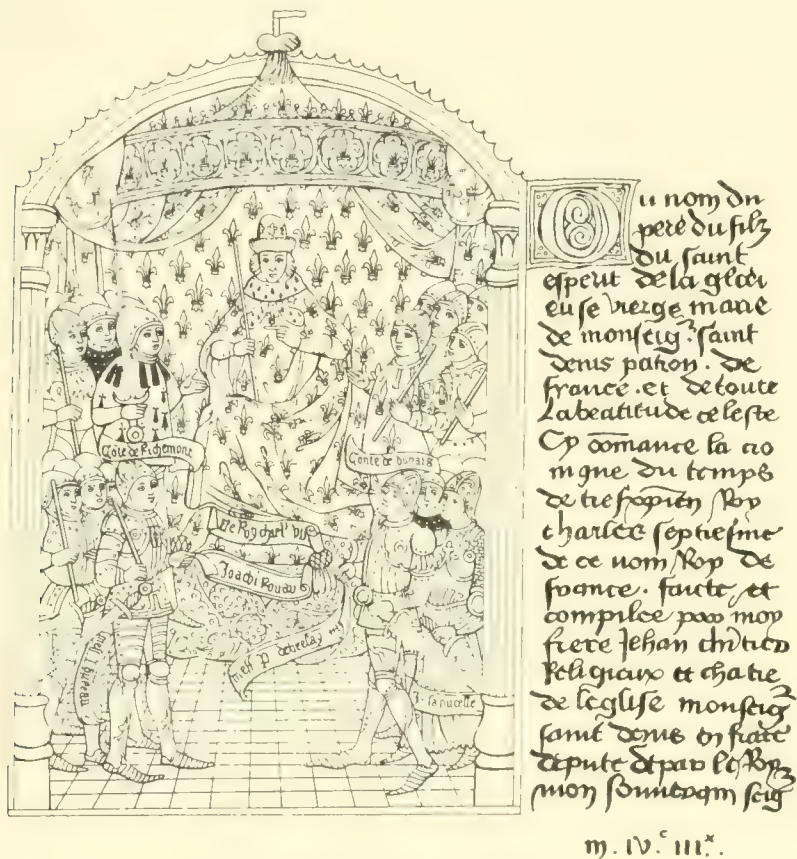 Cōte de Richemont
Conte de dunois
Le Roy charl' vii
Joachi Rouau
J. la pucelle
Ou nom du
pere du filz
du saint
esperit de la glori
euse vierge marie
de monseigr. saint
denis patron . de
france . et de toute
La beatitude celeste
Cy cōmance la cro
nique du temps
de tresxpien Roy
charles septiesme
de ce nom Roy de
france . faicte et
compilee par moy
frere Jehan
Religieux et chātre
de leglise monseigr
saint denis en frāce
depute depar le Roy
mon souuerain seigr
m. IV.c III.x.